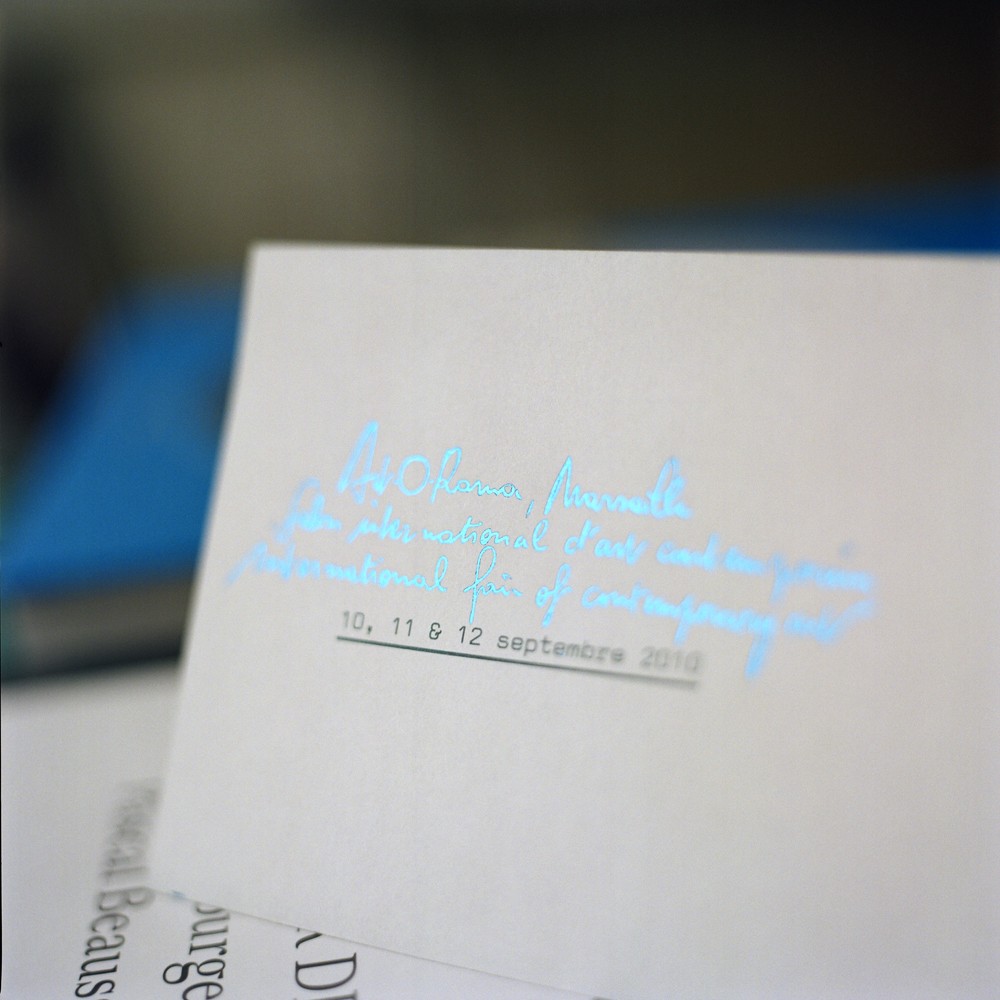 ArtORama, Marseille
Salon international d'art contemporain
international fair of contemporary art
10, 11 & 12 septembre 2010
Pascal Beaus
ourge
A D